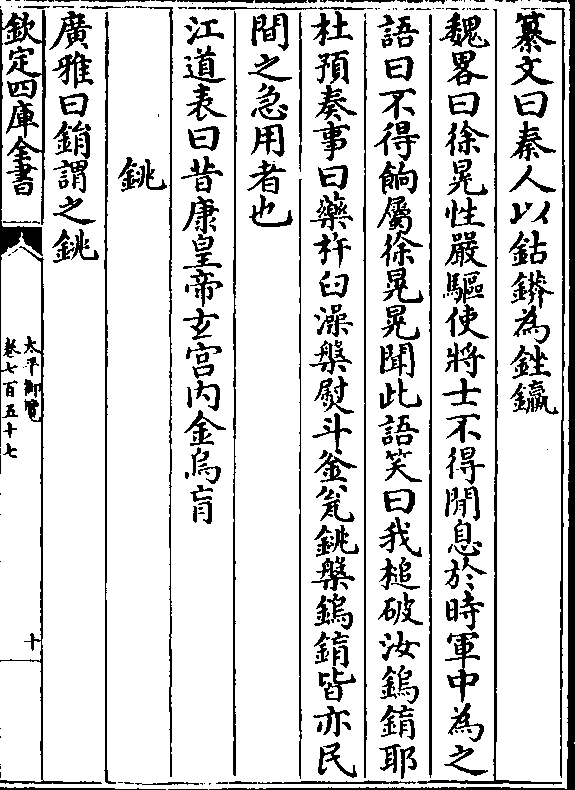 纂文曰秦人以鈷䥈為銼鑹
魏畧曰徐晃性嚴驅使將士不得閒息於時軍中為之
語曰不得餉屬徐晃晃聞此語笑曰我槌破汝鎢錥耶
杜預奏事曰藥杵臼澡槃熨斗釜瓮銚槃鎢錥皆亦民
間之急用者也
江道表曰昔康皇帝玄宫内金烏㡯
銚
廣雅曰鋗謂之銚
欽定四庫全書
太平御覽
卷七百五十七
十